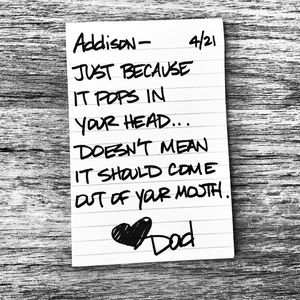 Addison— 4/21
JUST BECAUSE
IT POPS IN
YOUR HEAD...
DOESN'T MEAN
IT SHOULD COME
OUT OF YOUR MOUTH.
Dad